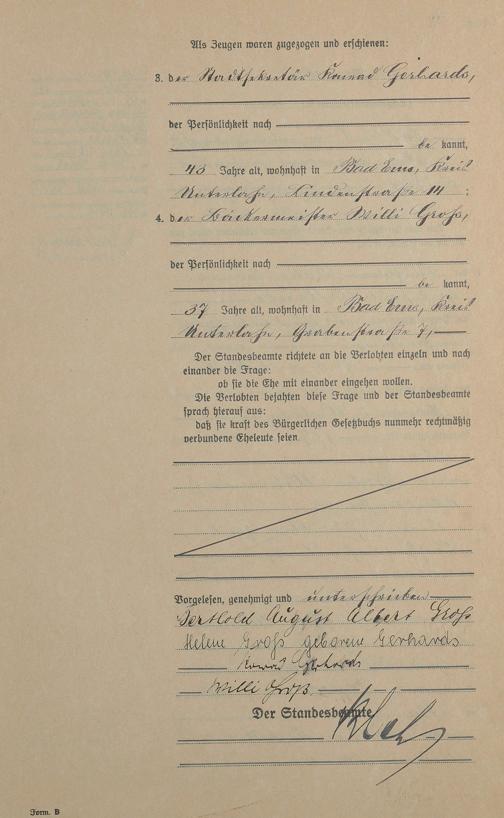 Als Zeugen waren zugezogen und erschienen:
3. der Stadtsekretär Konrad Gerhards,
der Persönlichkeit nach
be kannt,
43 Jahre alt, wohnhaft in Bad Ems, Kreis
Unterlahn, Lindenstraße 14 ;
4. der Bäckermeister Willi Groß,
der Persönlichkeit nach
be kannt,
37 Jahre alt, wohnhaft in Bad Ems, Kreis
Unterlahn, Grabenstraße 7,
Der Standesbeamte richtete an die Verlobten einzeln und nach
einander die Frage:
ob sie die Ehe mit einander eingehen wollen.
Die Verlobten bejahten diese Frage und der Standesbeamte
sprach hierauf aus:
daß sie kraft des Bürgerlichen Gesetzbuchs nunmehr rechtmäßig
verbundene Eheleute seien.
Vorgelesen, genehmigt und unterschrieben
Berthold August Albert Groß
Helene Groß geborene Gerhards
Konrad Gerhards
Willi Groß.
Der Standesbeamte
Form. B